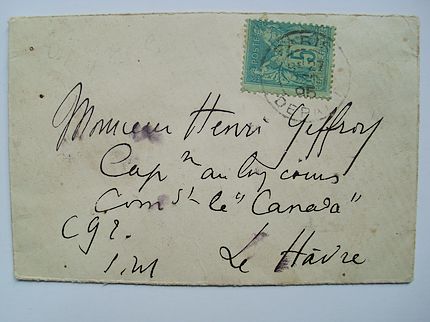 POSTE
5
PARIS
95
Monsieur Henri Geffroy
Cap.ne au long cours
Com.dt le "Canada"
Le Hâvre